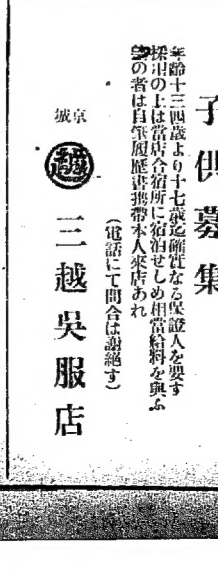 子供募集
年齡十三四歲より十七歲迄確實なる保證人を要す
採用の上は當店合宿所に宿泊せしめ相當給料を與ふ
望の者は自筆履歷書携帶本人來店あれ
(電話にて問合は謝絕す)
京城
越
三越吳服店